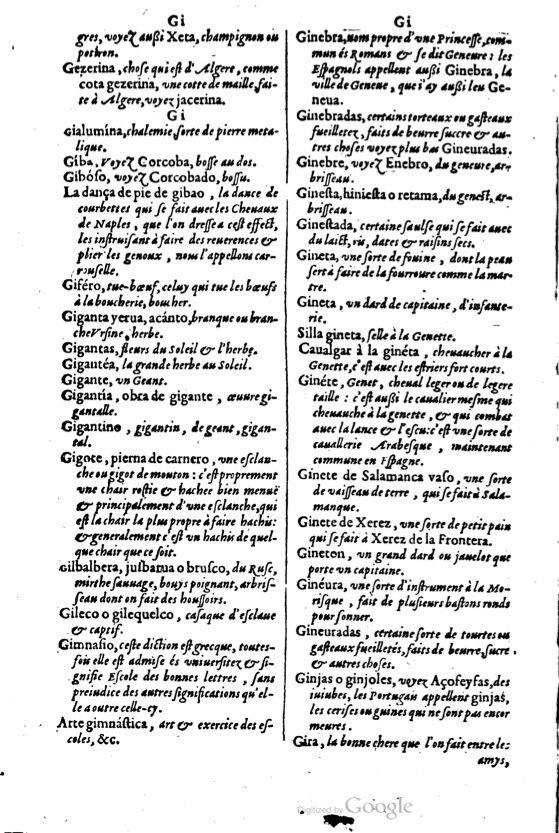 Gi
gres, voyez außi Xeta, champignon ou
potiron.
Gezerina, chose qui est d'Algere, comme
cota gezerina, vne cotte de maille, fai-
te à Algere, voyez jacerina.
Gi
Gialumína, chalemie, sorte de pierre meta-
lique.
Giba, voyez Corcoba, bosse au dos.
Gibóso, voyez Corcobado, bossu.
La dança de pie de gibao, la dance de
courbettes qui se fait auec les Cheuaux
de Naples, que l'on dresse a cest effect,
les instruisant à faire des reuerences &
plier les genoux, nous l'appellons car-
rouselle.
Giféro, tue-bœuf, celuy qui tue les bœufs
à la boucherie, boucher.
Giganta yerua, acánto, branque ou bran-
che Vrsine, herbe.
Gigantas, fleurs du Soleil & l'herbe.
Gigantéa, la grande herbe au Soleil.
Gigante, vn Geant.
Gigantía, obra de gigante, œuure gi-
gantalle.
Gigantino, gigantin, de geant, gigan-
tal.
Gigote, pierna de carnero, vne esclan-
che ou gigot de mouton : c'est proprement
vne chair rostie & hachee bien menuë
& principalement d'vne esclanche, qui
est la chair la plus propre à faire hachis:
& generalement c'est vn hachis de quel-
que chair que ce soit.
Gilbalbera, jusbarua o brusco, du Rusc,
mirthe sauuage, bouys poignant, arbris-
seau dont on fait des houssoirs.
Gileco o gilequelco, casaque d'esclaue
& captif.
Gimnasio, ceste diction est grecque, toutes-
fois elle est admise és vniuersitez & si-
gnifie Escole des bonnes lettres, sans
preiudice des autres significations qu'el-
le a outre celle-cy.
Arte gimnástica, art & exercice des es-
coles, &c.
Gi
Ginebra, nom propre d'vne Princesse, com-
mun és Romans & se dit Geneure : les
Espagnols appellent außi Ginebra, la
ville de Geneue, que i'ay außi leu Ge-
neua.
Ginebradas, certains torteaux ou gasteaux
fueilletez, faits de beurre succre & au-
tres choses voyez plus bas Gineuradas.
Ginebre, voyez Enebro, du geneure, ar-
brisseau.
Ginesta, hiniesta o retama, du genest, ar-
brisseau.
Ginestada, certaine saulse qui se fait auec
du laict, ris, dates & raisins secs.
Gineta, vne sorte de fouine, dont la peau
sert à faire de la fourroure comme la mar-
tre.
Gineta, vn dard de capitaine, d'infante-
rie.
Silla gineta, selle à la Genette.
Caualgar à la ginéta, cheuaucher à la
Genette, c'est auec les estriers fort courts.
Ginéte, Genet, cheual leger ou de legere
taille : c'est außi le caualier mesme qui
cheuauche à la genette, & qui combat
auec la lance & l'escu: c'est vne sorte de
cauallerie Arabesque, maintenant
commune en Espagne.
Ginete de Salamanca vaso, vne sorte
de vaisseau de terre, qui se fait à Sala-
manque.
Ginete de Xerez, vne sorte de petit pain
qui se fait à Xerez de la Frontera.
Gineton, vn grand dard ou jauelot que
porte vn capitaine.
Ginéura, vne sorte d'instrument à la Mo-
risque, fait de plusieurs bastons ronds
pour sonner.
Gineuradas, certaine sorte de tourtes ou
gasteaux fueilletés, faits de beurre, sucre
& autres choses.
Ginjas o ginjoles, voyez Açofeyfas, des
iuiubes, les Portugais appellent ginjas,
les cerises ou guines qui ne sont pas encor
meures.
Gira, la bonne chere que l'on fait entre les
amys,
Digitized by Google